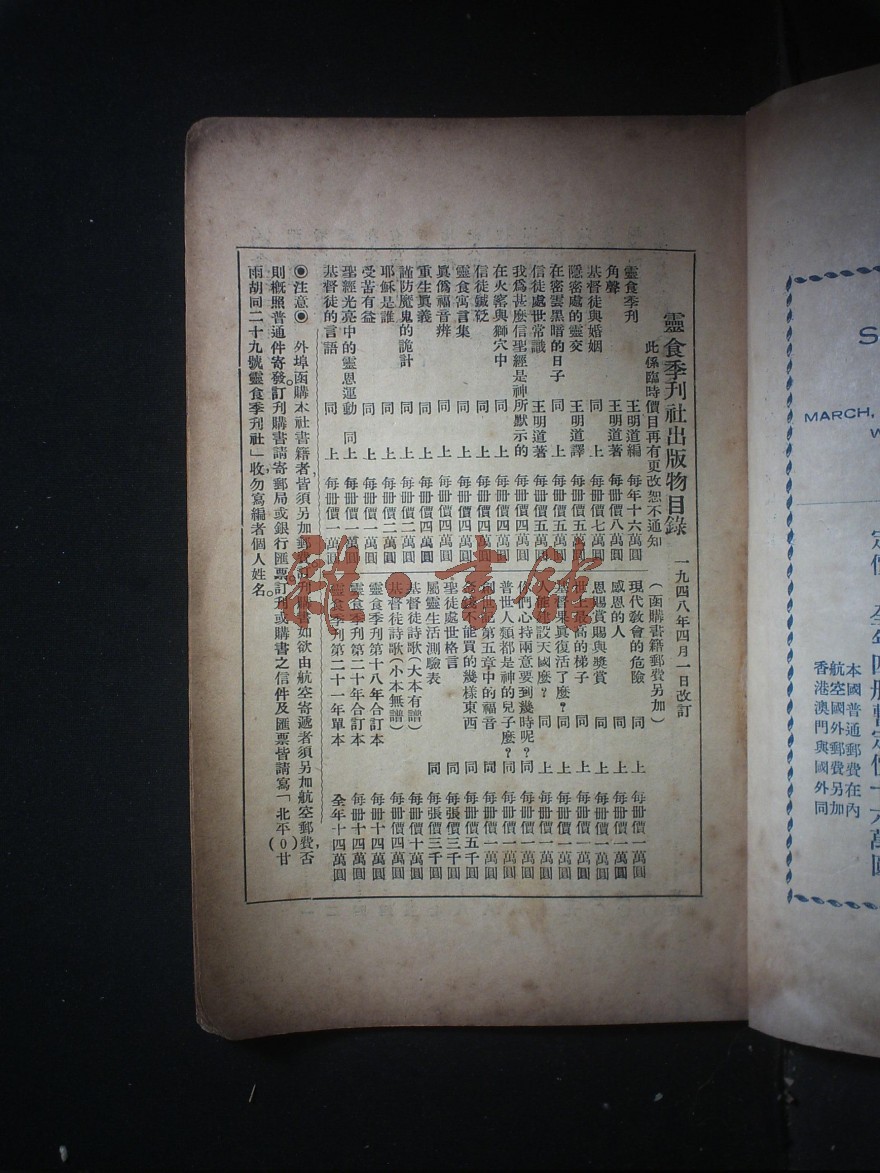 靈食季刊社出版物目錄
一九四八年四月一日改訂
此係臨時價目再有更改恕不通知
(函購書籍郵費另加)
靈食季刊 王明道編 每年十六萬圓
角聲 王明道著 每冊價八萬圓
基督徒與婚姻 同上 每冊價七萬圓
隱密處的靈交 王明道譯 每冊價五萬圓
在密雲黑暗的日子 同上 每冊價五萬圓
信徒處世常識 王明道著 每冊價五萬圓
我為甚麼信聖經是神所默示的 每冊價四萬圓
在火窰與獅穴中 同上 每冊價四萬圓
信徒鍼砭 同上 每冊價四萬圓
靈食寓言集 同上 每冊價四萬圓
真偽福音辨 同上 每冊價四萬圓
重生真義 同上 每冊價四萬圓
謹防魔鬼的詭計 同上 每冊價二萬圓
耶穌是誰 同上 每冊價二萬圓
受苦有益 同上 每冊價一萬圓
聖經光亮中的靈恩運動 同上 每冊價一萬圓
基督徒的言語 同上 每冊價一萬圓
現代教會的危險 同上 每冊價一萬圓
感恩的人 同上 每冊價一萬圓
恩賜賞賜與獎賞 同上 每冊價一萬圓
世上最高的梯子 同上 每冊價一萬圓
基督果真復活了麼? 同上 每冊價一萬圓
人能建設天國麼? 同上 每冊價一萬圓
你們心持兩意要到幾時呢? 同 每冊價一萬圓
普世人類都是神的兒子麼? 同 每冊價一萬圓
創世記第五章中的福音 同 每冊價一萬圓
金錢不能買的幾樣東西 同 每冊價五千圓
聖徒處世格言 同 每張價三千圓
屬靈生活測驗表 同 每張價三千圓
基督徒詩歌(大本有譜) 每冊價十萬圓
基督徒詩歌(小本無譜) 每冊價四萬圓
靈食季刊第十八年合訂本 每冊十四萬圓
靈食季刊第二十年合訂本 每冊十四萬圓
靈食季刊第二十一年單本 全年十四萬圓
◉注意◉ 外埠函購本社書籍者,皆須另加郵費訂刊購書如欲由航空寄遞者須另加航空郵費,否
則概照普通件寄發。訂刊購書請寄郵局或銀行匯票訂刊或購書之信件及匯票皆請寫「北平(0)甘
雨胡同二十九號靈食季刊社」收,勿寫編者個人姓名。
S
MARCH,
W
定價 全年四冊暫定價十六萬圓
本國普通郵費在內
航空國外郵費另加
香港澳門與國外同